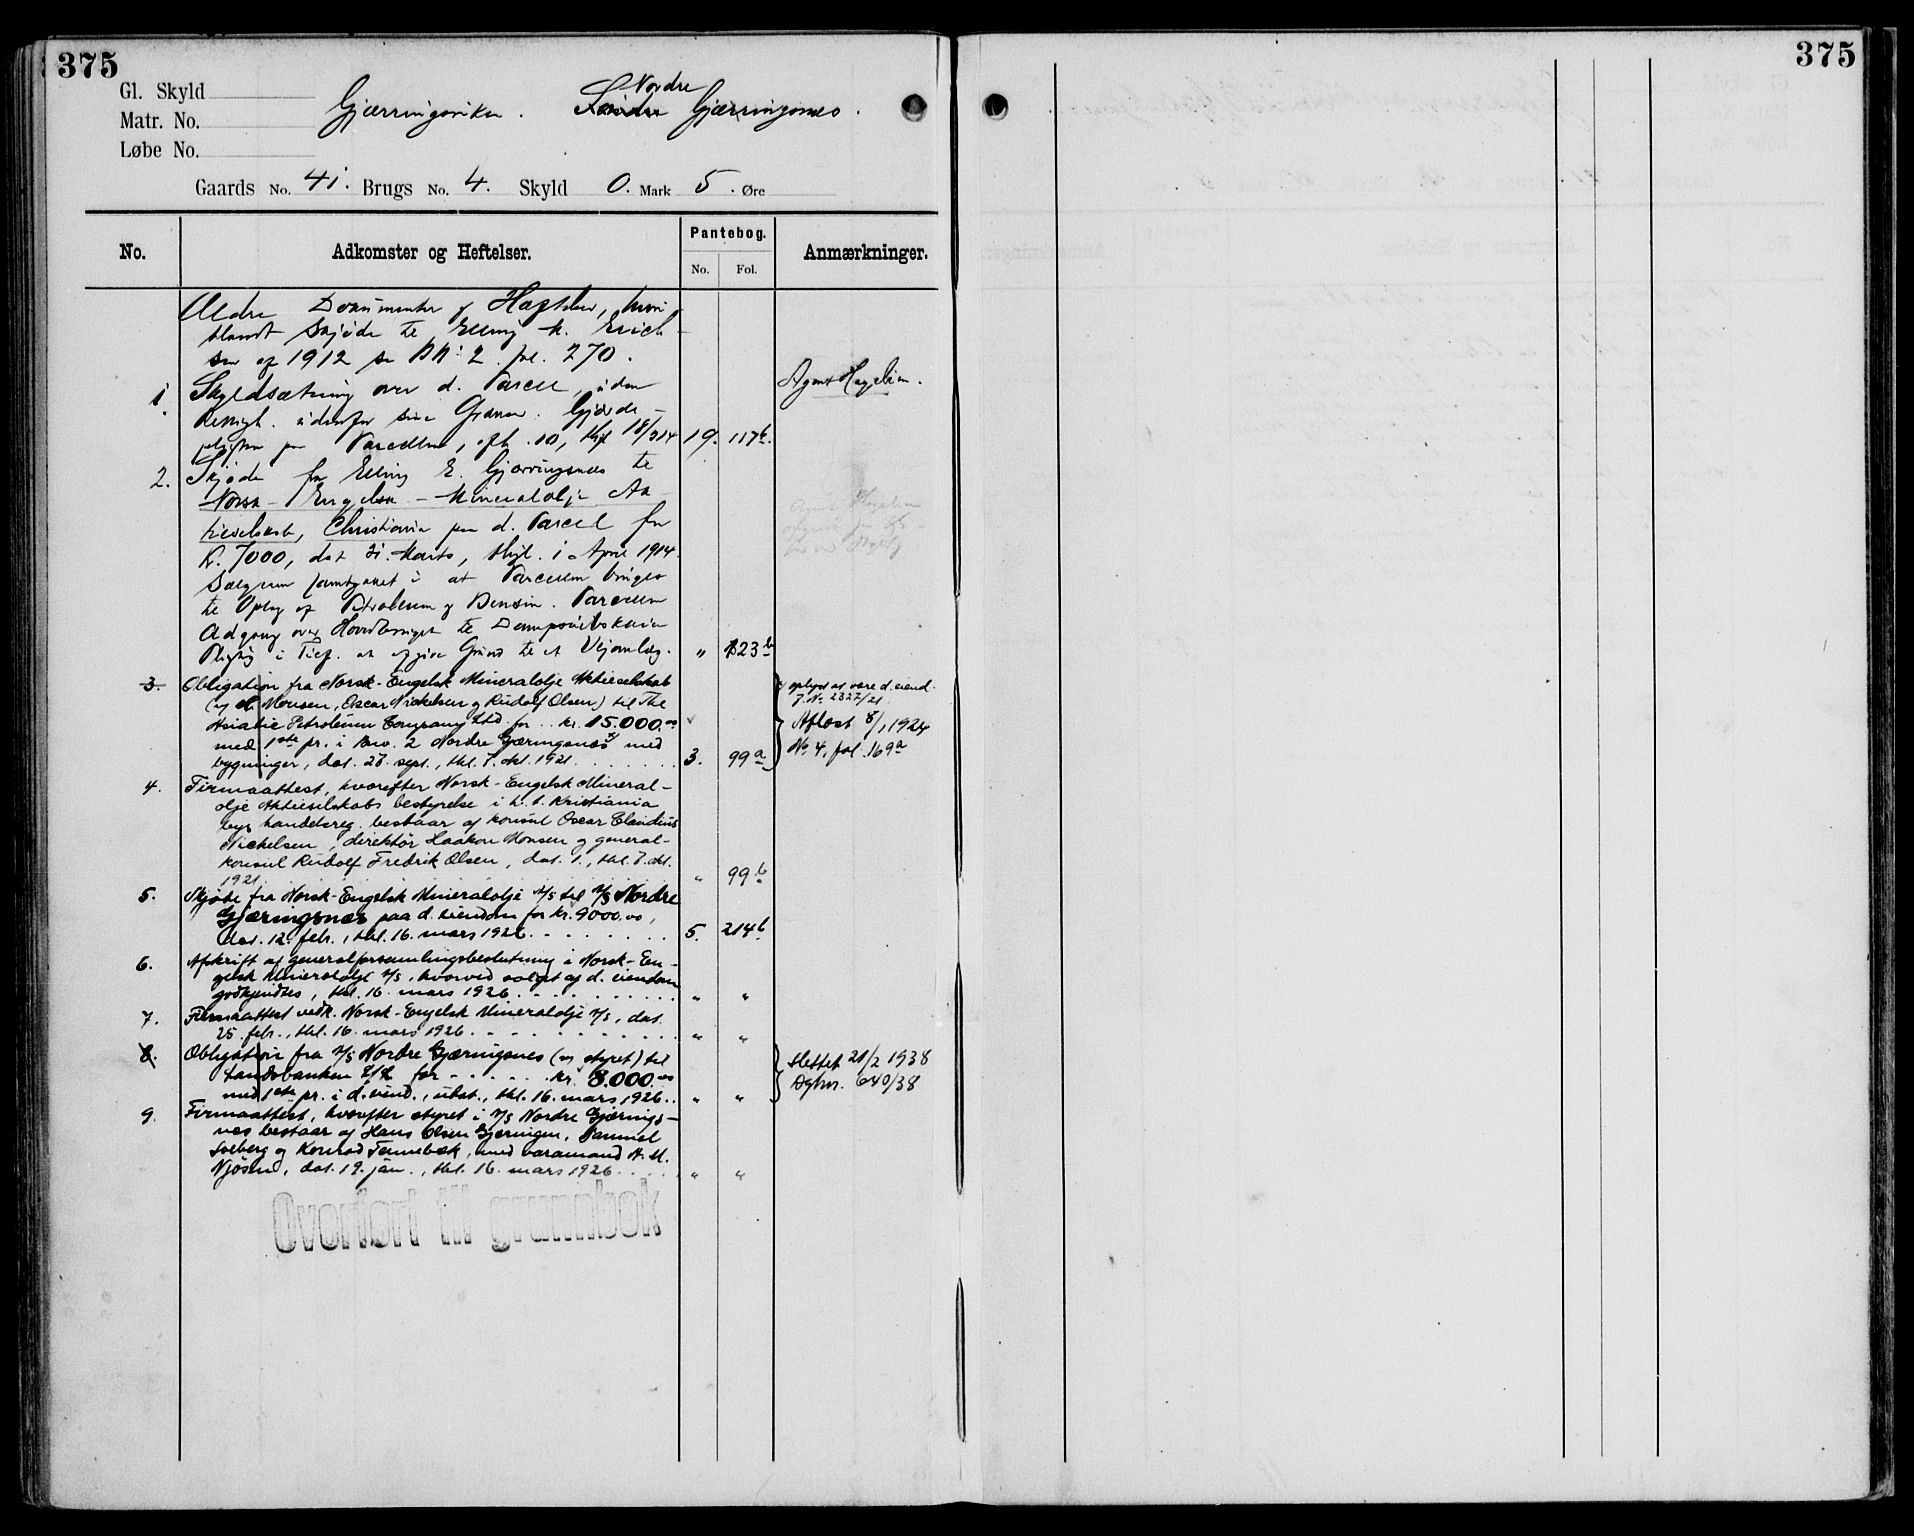 375
375
Gl. Skyld
Matr. No.
Løbe No.
Gjærringsviken. Nordre
Søndre Gjærringsnes.
Gaards No. 41. Brugs No. 4. Skyld 0. Mark 5. Øre
No. Adkomster og Heftelser. Pantebog. Anmærkninger.
No. Fol.
Ældre Dokumenter og Hæftelser, hvori
blandt Skjøde til Elling K. Erich
sen af 1912 se fol. 270.
1. Skyldsætning over d. Parcel, uden
Rettigh. udenfor sine Grænser. Gjærde-
pligten paa Parcellen, afh. 10, thgl 18/3 14 19. 117b.
Agent Hagelin.
2. Skjøde fra Elling E. Gjærringsnes til
Norsk-Engelsk-Mineralolje Ak
tieselskab, Christiania paa d. Parcel for
K. 7000, dat 31. Marts, thgl. 1 April 1914.
Sælgeren samtykket i at Parcellen bruges
til Oplag af Petroleum og Bensin. Parcellen
Adgang over Hovedbruget til Dampskibskaien
Pligtig i Tilf. at afgive Grund til et Vejanlæg. " 123b
3. Obligation fra Norsk-Engelsk Mineralolje Aktieselskab
(ved H. Monsen, Oscar Nickelsen og Rudolf Olsen) til The
Asiatic Petroleum Company Ltd. for .. kr. 15.000.00
med 1ste pr. i Bno. 2 Nordre Gjæringsnes x) med
bygninger, dat. 27. sept., thl. 7. okt. 1921. 3. 99a
x oplyst at være d. eiend.
J. No 2327/21
Aflæst 8/1 1924
No. 4, fol. 169a
4. Firmaattest, hvorefter Norsk-Engelsk Mineral-
olje Aktieselskabs bestyrelse i h. t. Kristiania
bys handelsreg. bestaar af konsul Oscar Claudius
Nickelsen, direktør Haakon Monsen og general-
konsul Rudolf Fredrik Olsen, dat. 1., thl. 7. okt.
1921. " 99b
5. Skjøte fra Norsk-Engelsk Mineralolje A/S til A/S Nordre
Gjæringsnes paa d. eiendom for kr. 9000.00,
dat. 12. febr., thl. 16. mars 1926. 5. 214b
6. Afskrift af generalforsamlingsbeslutning i Norsk-En-
gelsk Mineralolje A/S, hvorved salget af d. eiendom
godkjendtes, thl. 16. mars 1926. " "
7. Firmaattest vedk. Norsk-Engelsk Mineralolje A/S, dat.
25. febr., thl. 16. mars 1926. " "
8. Obligation fra A/S Nordre Gjæringsnes (ved styret) til
Landsbanken A/S for kr. 8.000.00
med 1ste pr. i d. eiend., udat., thl. 16. mars 1926. " "
Slettet 21/2 1938
Dgbnr. 640/38
9. Firmaattest, hvorefter styret i A/S Nordre Gjærings-
nes bestaar af Hans Olsen Gjæringen, Samuel
Solberg og Konrad Tennebæk, med varamand A. M.
Njøsen, dat. 19. jan., thl. 16. mars 1926. " "
Overført til grunnbok